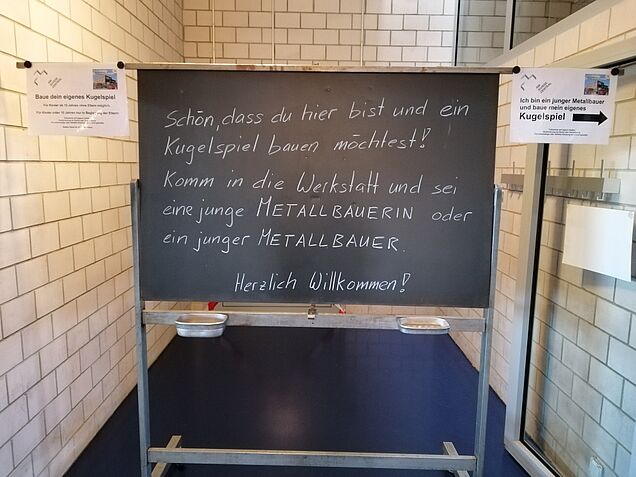 Baue dein eigenes Kugelspiel
Für Kinder ab 10 Jahren ohne Eltern möglich.
Für Kinder unter 10 Jahren nur in Begleitung der Eltern
Schön, dass du hier bist und ein
Kugelspiel bauen möchtest!
Komm in die Werkstatt und sei
eine junge METALLBAUERIN oder
ein junger METALLBAUER.
Herzlich Willkommen!
Ich bin ein junger Metallbauer
und baue mein eigenes
Kugelspiel